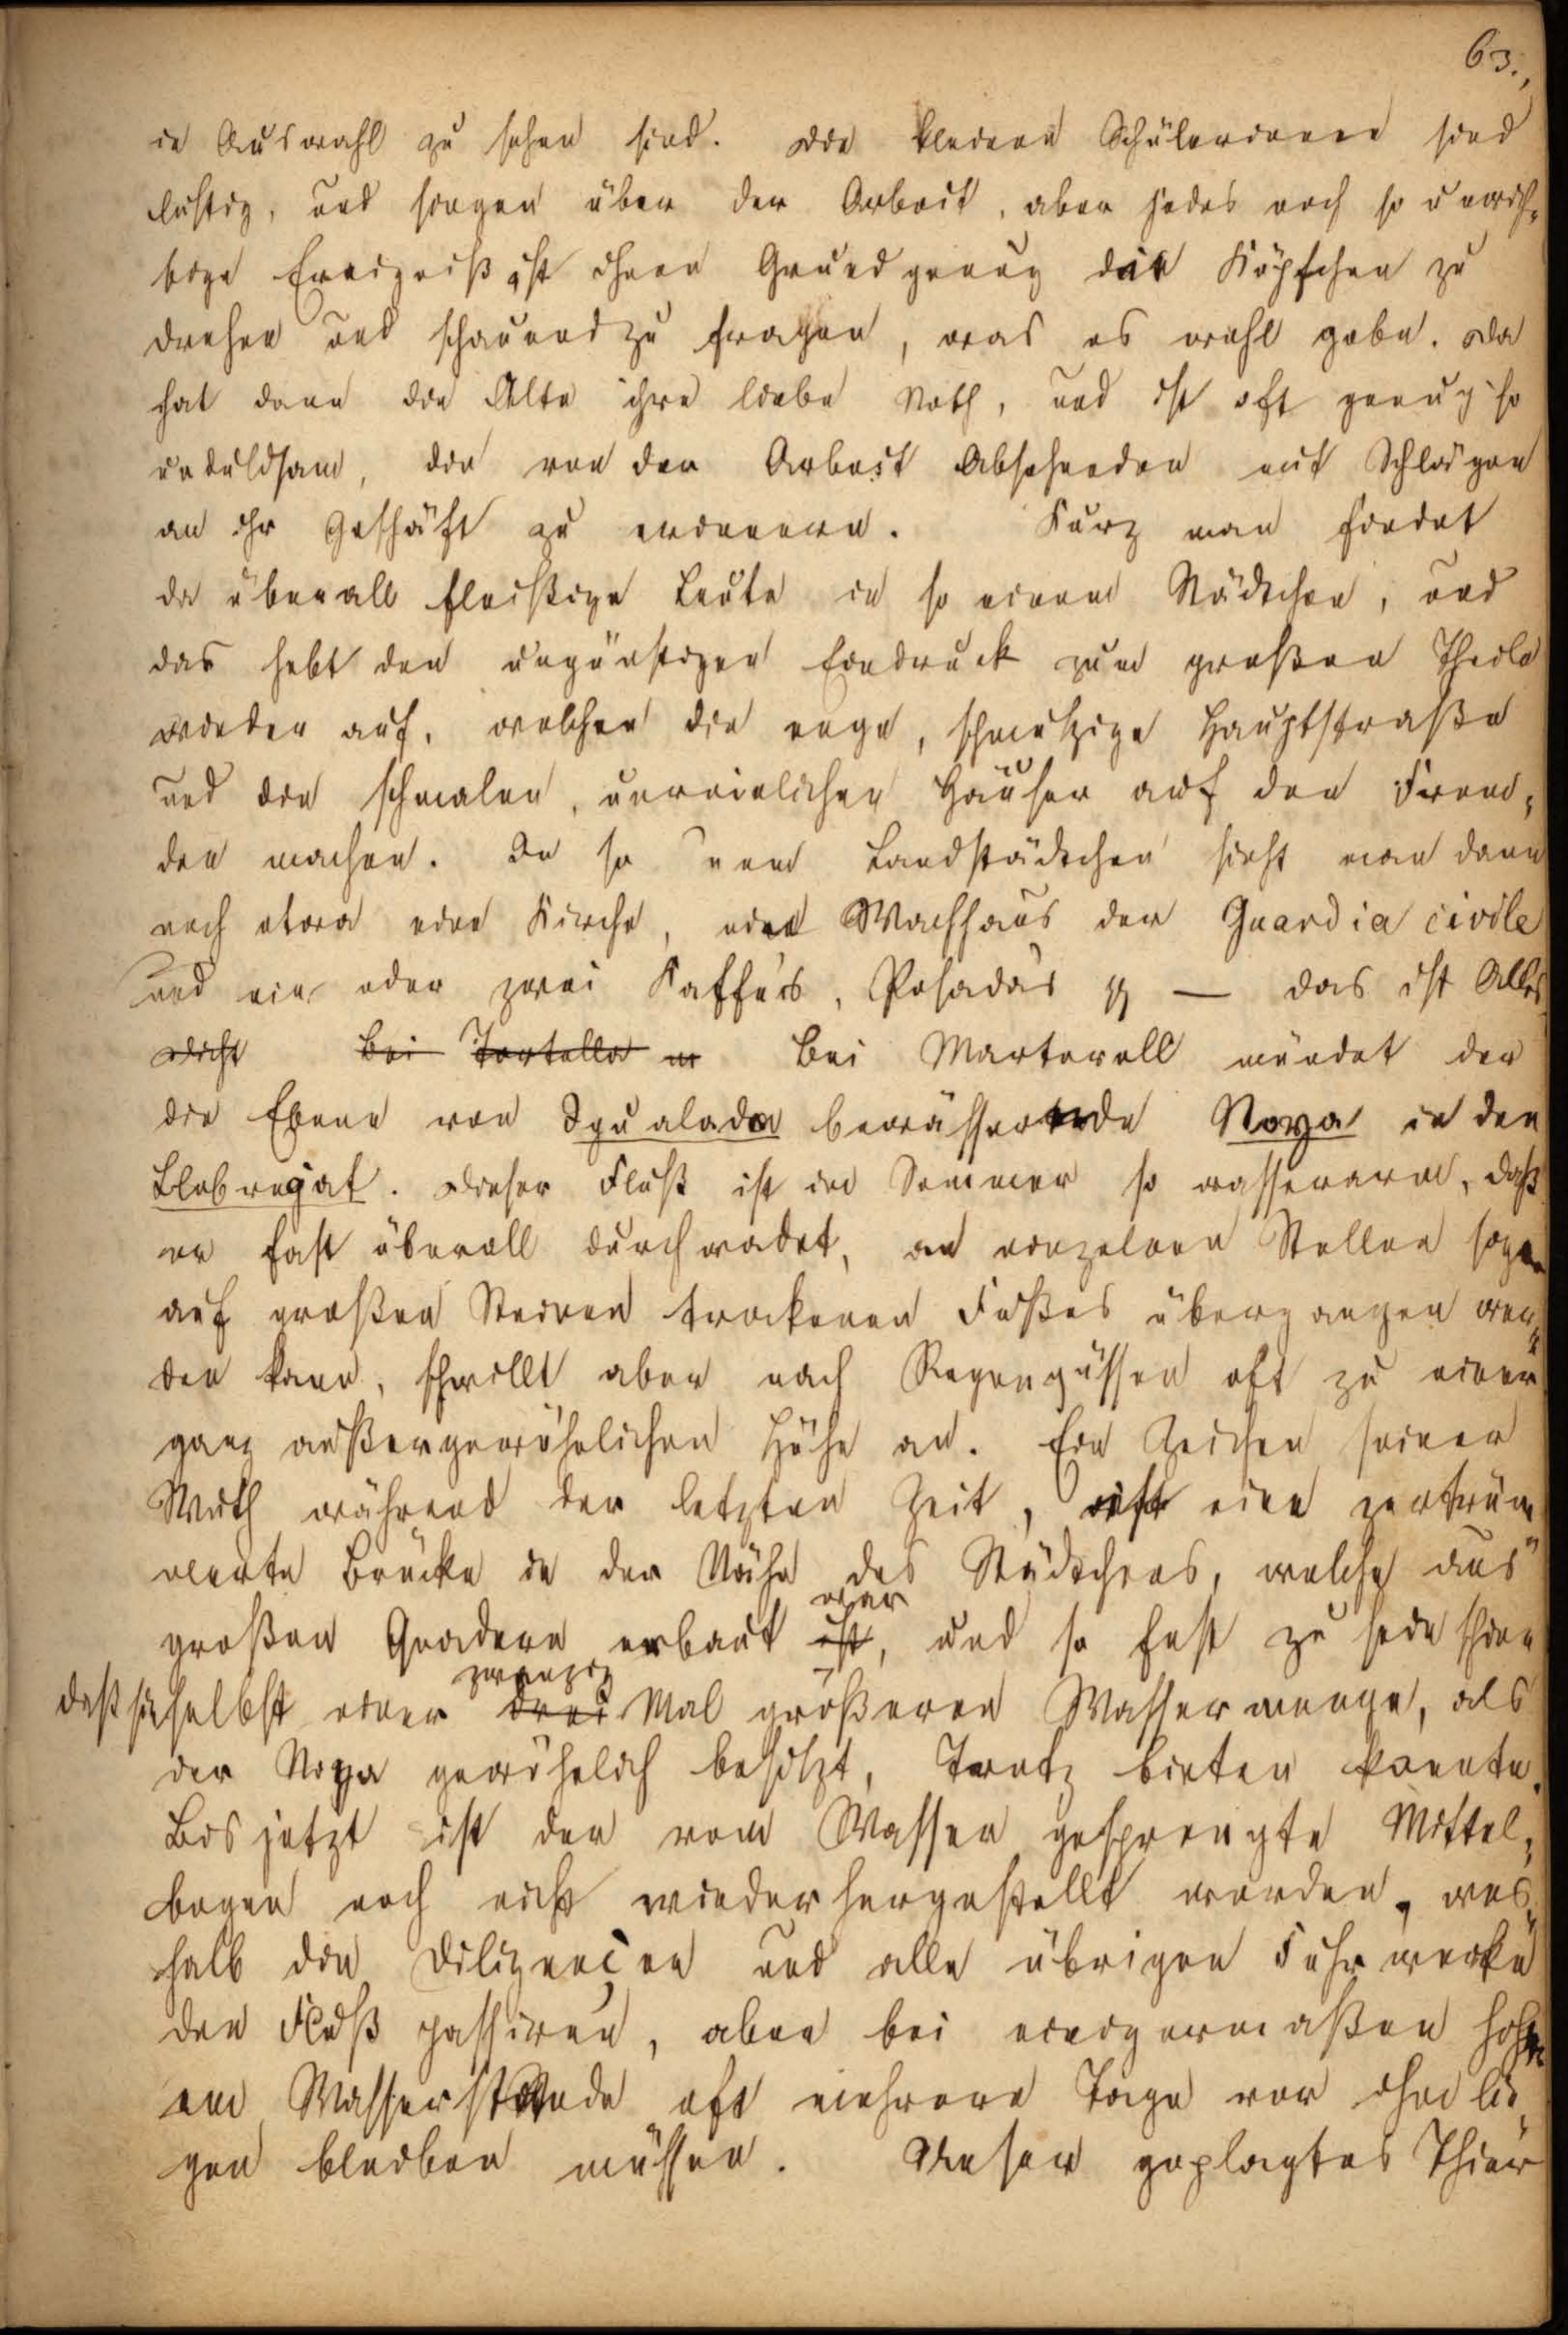 63.,
in Auswahl zu sehen sind. Die kleinen Schülerinnen sind
lustig, und singen über der Arbeit, aber jedes noch so unwich-
tige Ereigniß ist ihnen Grund genug die Köpfchen zu
drehen und schauend zu fragen, was es wohl gebe. Da
hat dann die Alte ihre liebe Noth, und ist oft genug so
unduldsam, die von der Arbeit Absehenden mit Schlägen
an ihr Geschäft zu erinnern. Kurz man findet
da überall fleißige Leute in so einem Städtchen, und
das hebt den ungünstigen Eindruck zum großen Theile
wieder auf, welchen die enge, schmutzige Hauptstraße
und die schmalen, unreinlichen Häuser auf den Frem-
den machen. In so nem Landstädtchen sieht man dann
noch etwa eine Kirche, eine Wachhaus der Guardia civile
und ein oder zwei Kaffés, Posadas — das ist Alles
Dicht bei Tortella m Bei Martorell mündet der
die Ebene von Igualada bewässernde Noya in den
Llobregat. Dieser Fluß ist im Sommer so wasserarm, daß
er fast überall durchwadet, an einzelnen Stellen sogar
auf großen Steinen trockenen Fußes übergangen wer-
den kann, schwillt aber nach Regengüssen oft zu einer
ganz außergewöhnlichen Höhe an. Ein Zeichen seiner
Wuth während der letzten Zeit, ist eine zertrüm-
merte Brücke in der Nähe des Städtchens, welche aus
war
großen Quadern erbaut ist, und so fest zu sein schien
zwanzig
daß sie selbst einer drei Mal größeren Wassermenge, als
der Noya gewöhnlich besitzt, Trotz bieten konnte.
Bis jetzt ist der vom Wasser gesprengte Mittel-
bogen noch nicht wieder hergestellt worden, wes-
halb die Diligencen und alle übrigen Fuhrwerke
den Fluß passiren, aber bei einigermaßen hoh-
em Wasserstande oft mehrere Tage vor ihm lie-
gen bleiben müssen. Unser geplagtes Thier